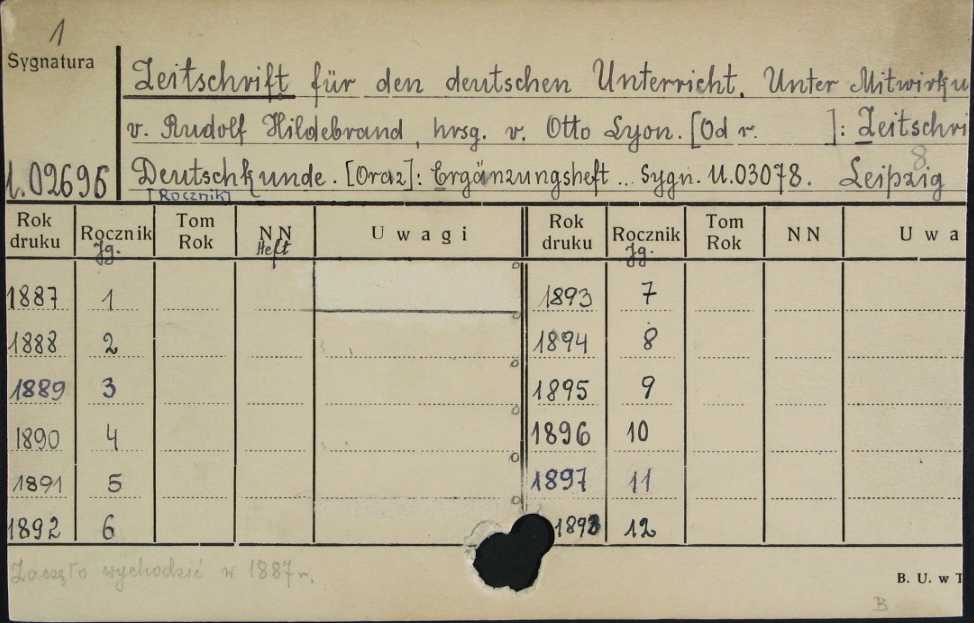 1
Sygnatura
Zeitschrift für den deutschen Unterricht. Unter Mitwirku
v. Rudolf Hildebrand, hrsg. v. Otto Lyon. [Od r. ]: Zeitschri
8
02695 Deutschkunde. [Oraz]: Ergänzungsheft ... Sygn. U.03078. Leipzig
[Rocznik]
Rok druku Rocznik Jg. Tom Rok NN Heft Uwagi Rok druku Rocznik Jg. Tom Rok NN Uwa
1887 1 1893 7
1888 2 1894 8
1889 3 1895 9
1890 4 1896 10
1891 5 1897 11
1892 6 1898 12
Zaczęło wychodzić w 1887 r.
B. U. w T
B